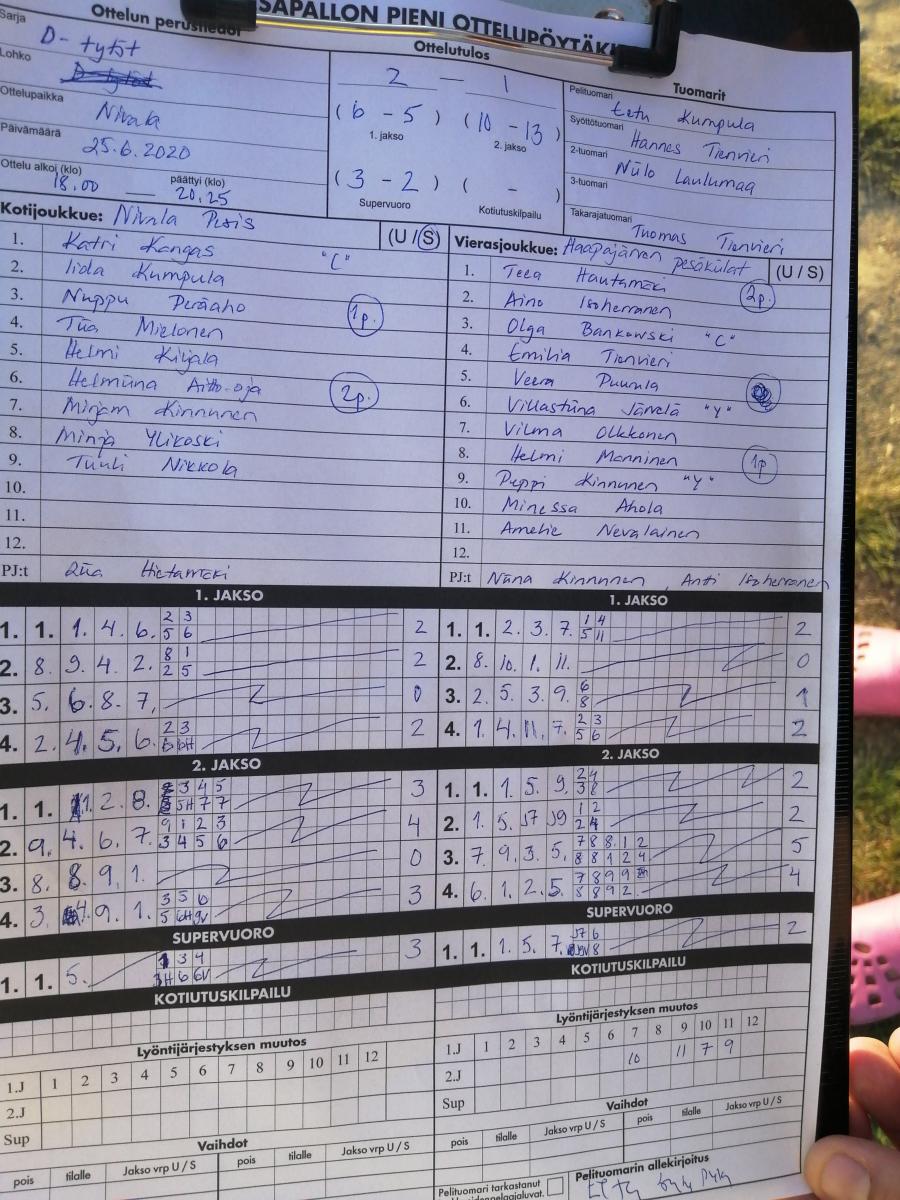 SAPALLON PIENI OTTELUPÖYTÄKI
Ottelun perustiedot
Sarja
D- tytöt
Lohko
Ottelupaikka
Nivala
Päivämäärä
25.6.2020
Ottelu alkoi (klo) päättyi (klo)
18.00 20.25
Ottelutulos
2 — 1
( 6 - 5 ) ( 10 - 13 )
1. jakso 2. jakso
( 3 - 2 ) ( - )
Supervuoro Kotiutuskilpailu
Tuomarit
Pelituomari
Eetu Kumpula
Syöttötuomari
Hannes Tienvieri
2-tuomari
Niilo Laulumaa
3-tuomari
Takarajatuomari
Tuomas Tienvieri
Kotijoukkue: Nivala Pesis (U / S)
1. Katri Kangas "C"
2. Iida Kumpula
3. Nuppu Peräaho 1p.
4. Tiia Mielonen
5. Helmi Kiljala
6. Helmiina Aitto-oja 2p.
7. Mirjam Kinnunen
8. Minja Ylikoski
9. Tuuli Nikkola
10.
11.
12.
PJ:t Riia Hietamäki
Vierasjoukkue: Haapajärven pesäkülat (U / S)
1. Teea Hautamäki 2p.
2. Aino Isoherranen
3. Olga Bankowski "C"
4. Emilia Tienvieri
5. Veera Puurula
6. Villastiina Järvelä "Y"
7. Vilma Olkkonen
8. Helmi Manninen 1p
9. Peppi Kinnunen "Y"
10. Minessa Ahola
11. Amelie Nevalainen
12.
PJ:t Niina Kinnunen, Anti Isoherranen
1. JAKSO
1. 1. 1. 4. 6. 2 3 2
5 6
2. 8. 9. 4. 2. 8 1 2
2 5
3. 5. 6. 8. 7. 0
4. 2. 4. 5. 6. 2 3 2
6 6H
1. JAKSO
1. 1. 2. 3. 7. 1 4 2
5 11
2. 8. 10. 1. 11. 0
3. 2. 5. 3. 9. 6 1
8
4. 1. 4. 11. 7. 2 3 2
5 6
2. JAKSO
1. 1. 2. 8. 2 3 4 5 3
3 5H 7 7
2. 9. 4. 6. 7. 9 1 2 3 4
3 4 5 6
3. 8. 8. 9. 1. 0
4. 3. 4. 9. 1. 3 5 6 3
5 6H 9V
2. JAKSO
1. 1. 1. 5. 9. 2 4 2
3 8
2. 1. 5. J7 J9 1 2 2
2 4
3. 7. 9. 3. 5. 7 8 8 1 2 5
8 8 1 2 4
4. 6. 1. 2. 5. 7 8 9 9 4
8 8 9 2
SUPERVUORO
1. 1. 5. 1 3 4 3
3H 6 6V
SUPERVUORO
1. 1. 1. 5. 7. J7 6 2
8
KOTIUTUSKILPAILU
KOTIUTUSKILPAILU
Lyöntijärjestyksen muutos
1.J 1 2 3 4 5 6 7 8 9 10 11 12
2.J
Sup
Lyöntijärjestyksen muutos
1.J 1 2 3 4 5 6 7 8 9 10 11 12
2.J 10 11 7 9
Sup
Vaihdot
pois tilalle Jakso vrp U / S pois tilalle Jakso vrp U / S
Vaihdot
pois tilalle Jakso vrp U / S pois tilalle Jakso vrp U / S
Pelituomari tarkastanut
Pelituomarin allekirjoitus